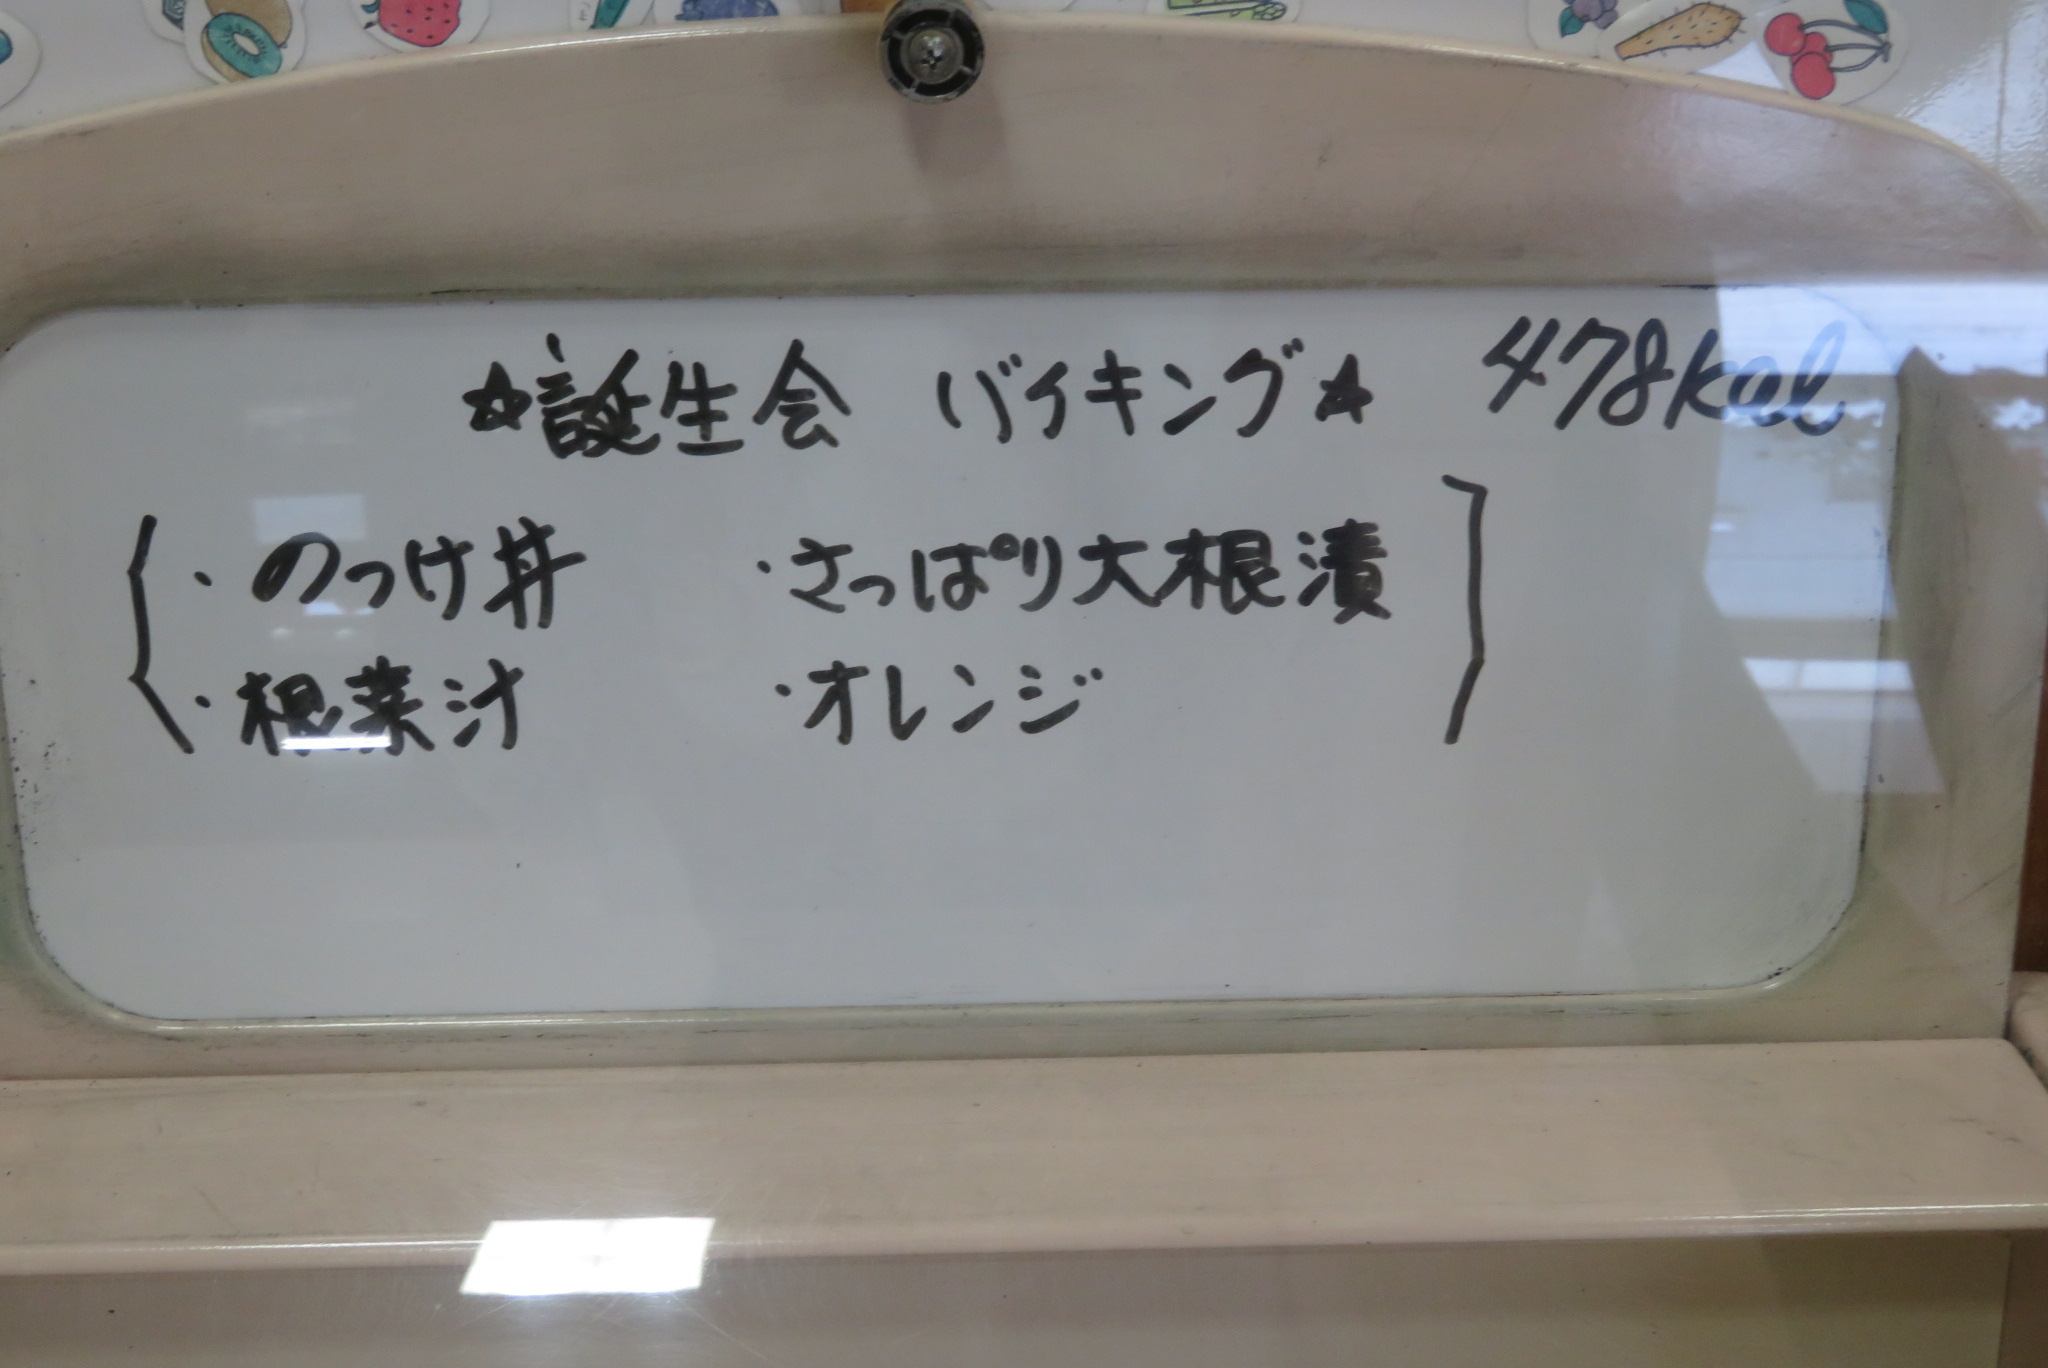 ☆誕生会 バイキング☆ 478kcal
・のっけ丼 ・さっぱり大根漬
・根菜汁 ・オレンジ